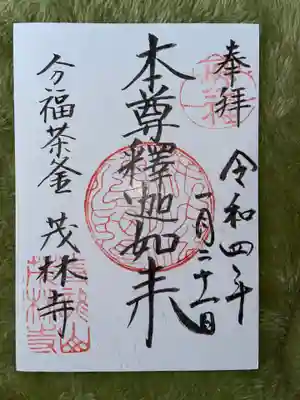 奉拝
令和四年
一月二十一日
本尊釋迦如来
分福茶釜 茂林寺